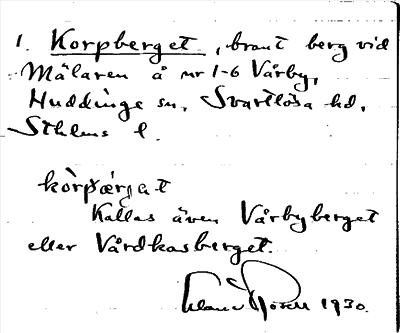 1. Korpberget, brant berg vid
Mälaren å nr 1-6 Vårby,
Huddinge sn, Svartlösa hd,
Sthlms l.
Kallas även Vårbyberget
eller Vårdkasberget.
1930.